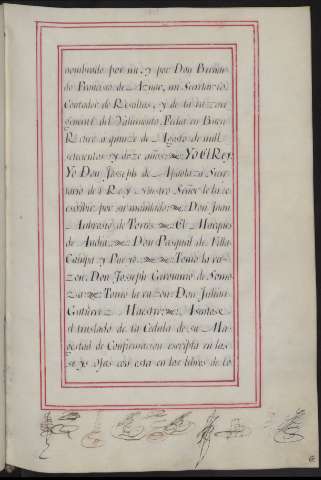 nombrado por mi, y por Don Bernar-
do Francisco de Aznar, mi Secretario,
Contador de Resultas, y de la Razon
general del Valimiento. Fecha en Buen
Retiro a quinze de Agosto de mill
setecientos y doze años. Yo El Rey.
Yo Don Joseph de Apaolaza Secre-
tario del Rey Nuestro Señor le hize
escribir por su mandado. Don Juan
Ambrosio de Torres. El Marques
de Andia. Don Pasqual de Villa-
Campa y Pueyo. Tomo la ra-
zon, Don Joseph Geronimo de Somo-
za. Tomo la razon Don Julian
Gutierrez Maestro. Asentose
el traslado de la Cedula de su Ma-
gestad de Confirmacion escripta en las
seys ojas con esta en los libros de lo